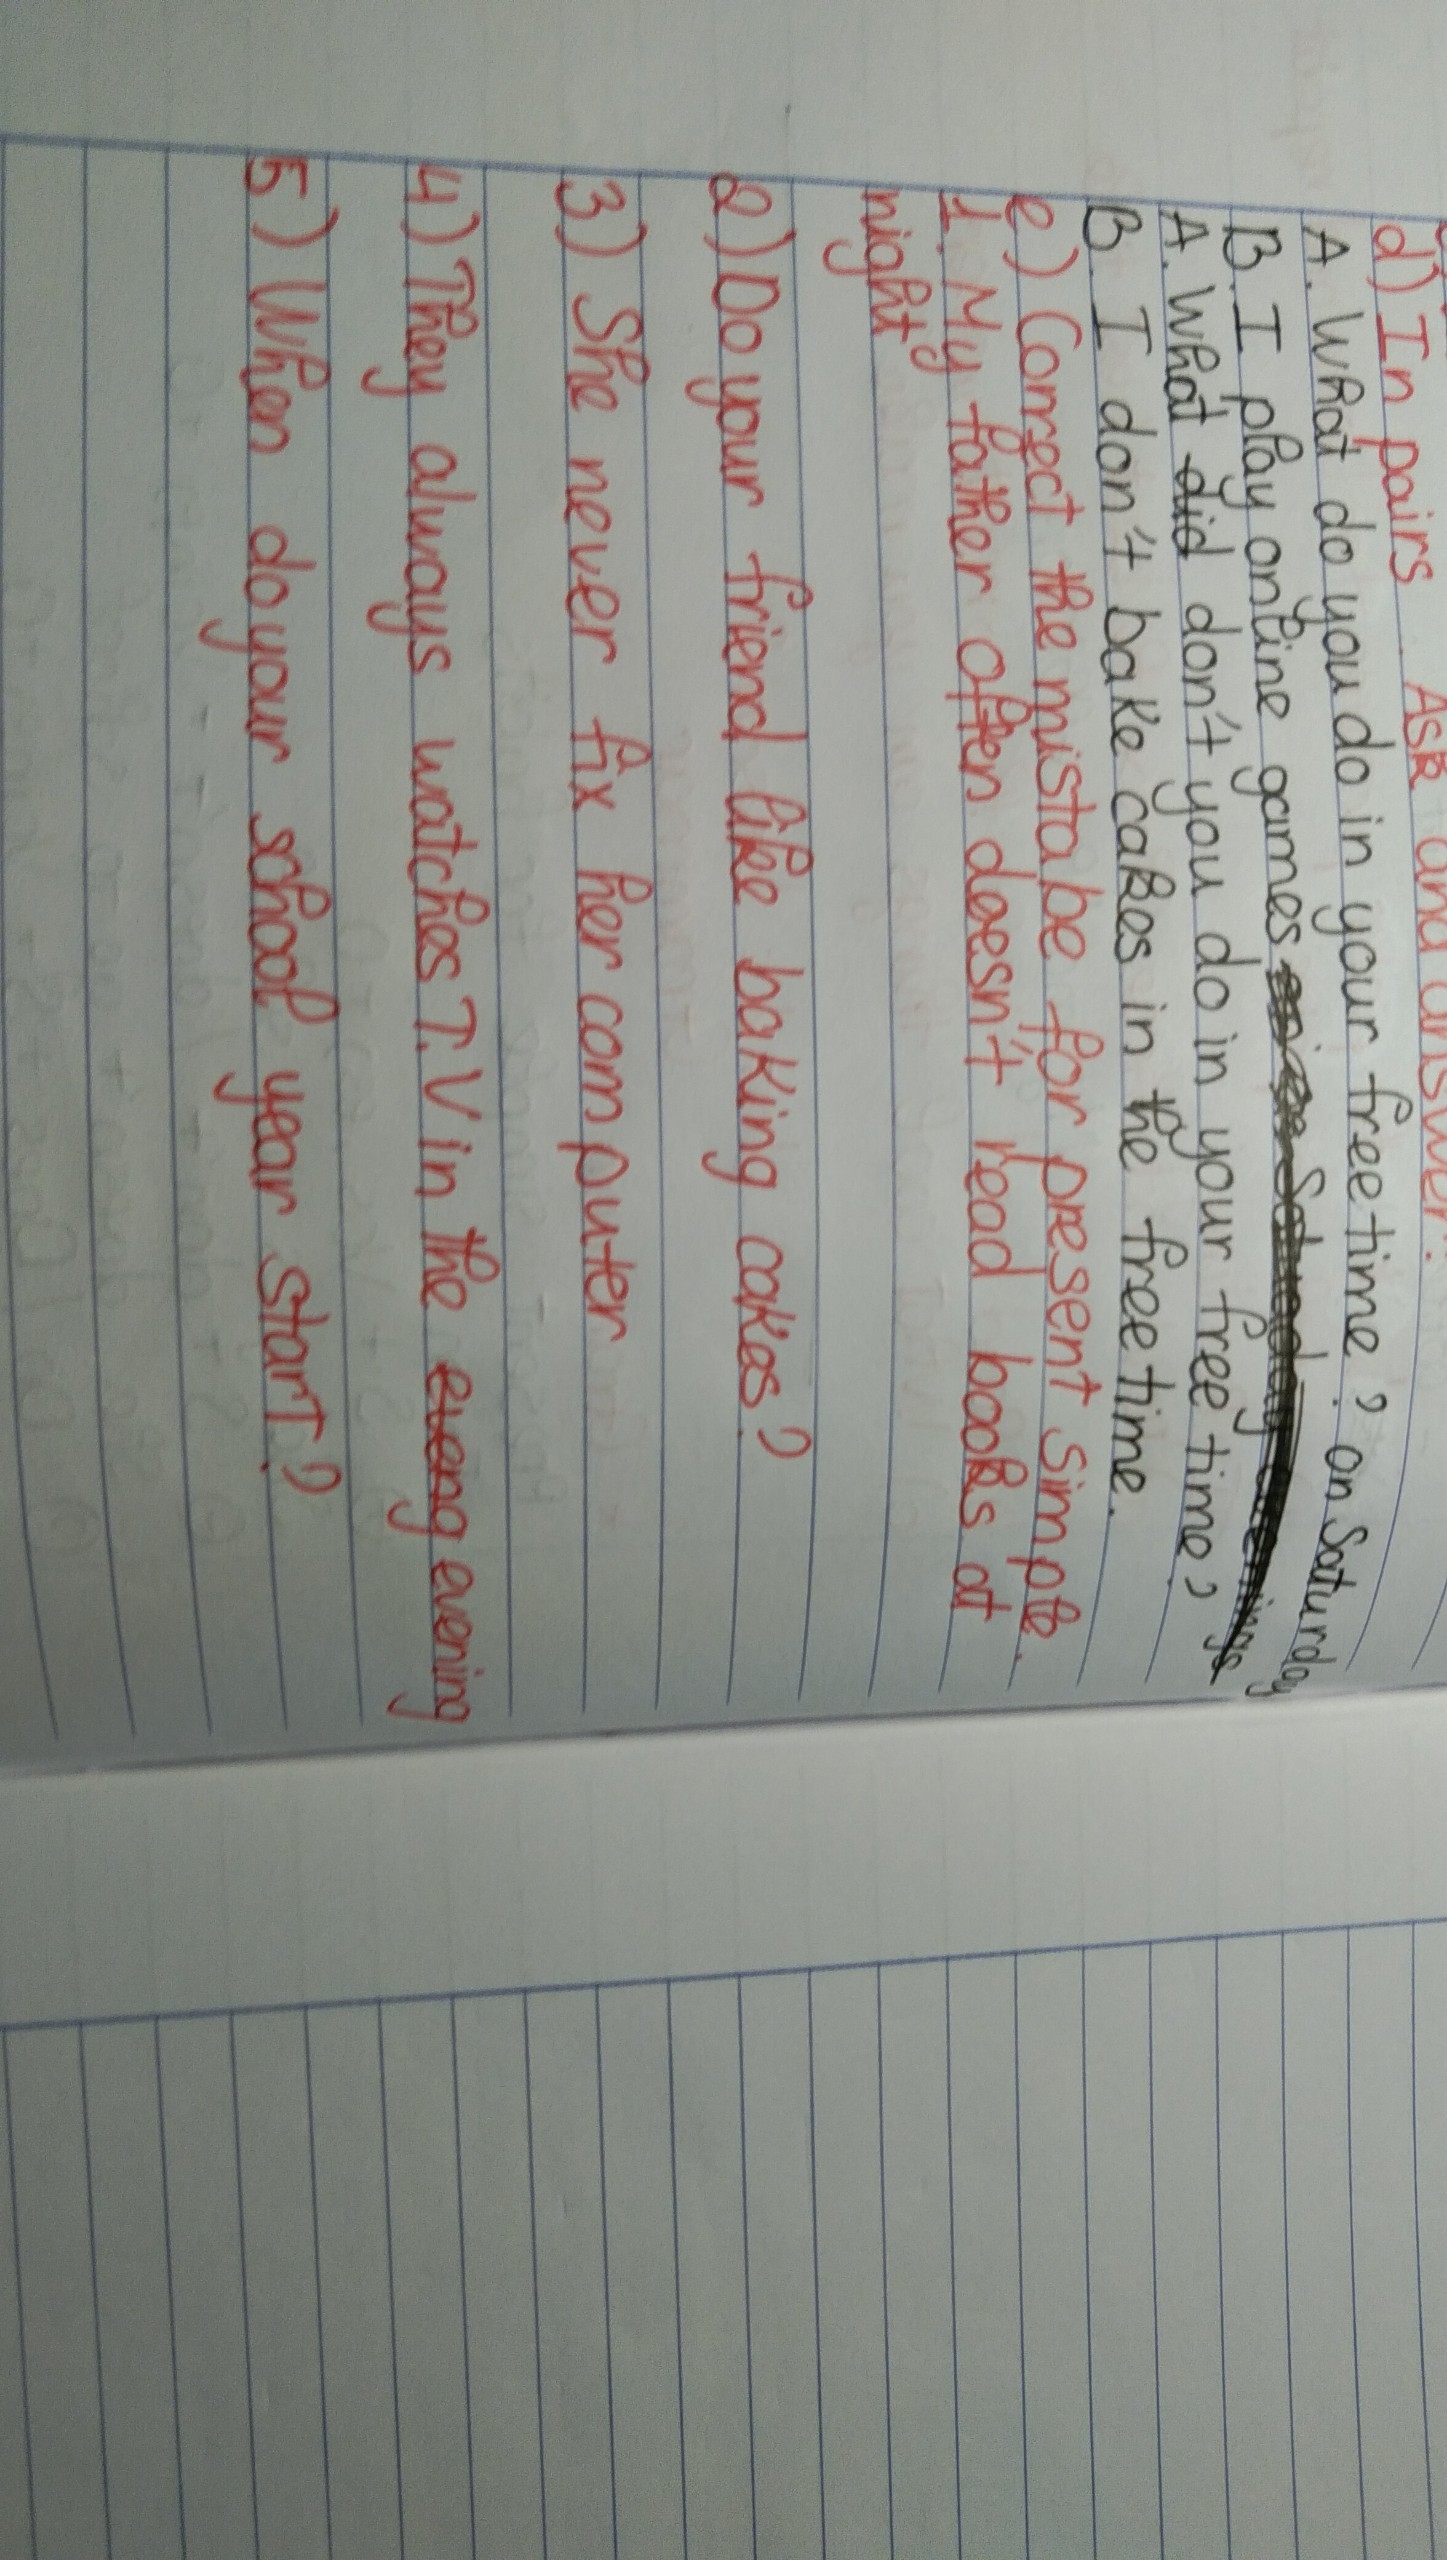 d) In pairs. Ask and answer.
A. What do you do in your free time? on Saturday
B. I play online games
A. What did don't you do in your free time?
B. I don't bake cakes in the free time.
e) Correct the mistabe for present simple.
1. My father often doesn't read books at
night
2) Do your friend like baking cakes?
3) She never fix her computer
4) They always watches T.V in the eveng evening
5) When do your school year start?